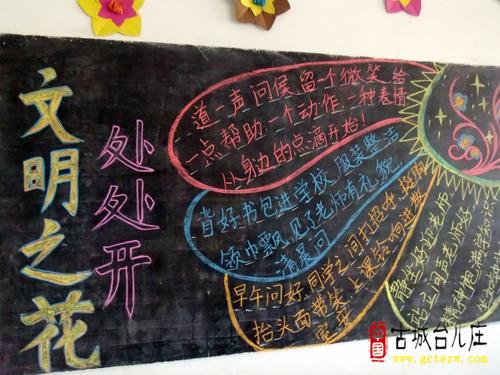 文明之花
处处开
道一声问侯留一个微笑给
一点帮助一个动作,一种表情
从身边的点滴开始!
背好书包进学校,服装整洁
领巾飘,见了老师有礼貌,
清晨问
早午问好,同学之间打招呼,挺胸
抬头面带笑,上课铃响进教
室安
古城台儿庄
www.gctezw.com